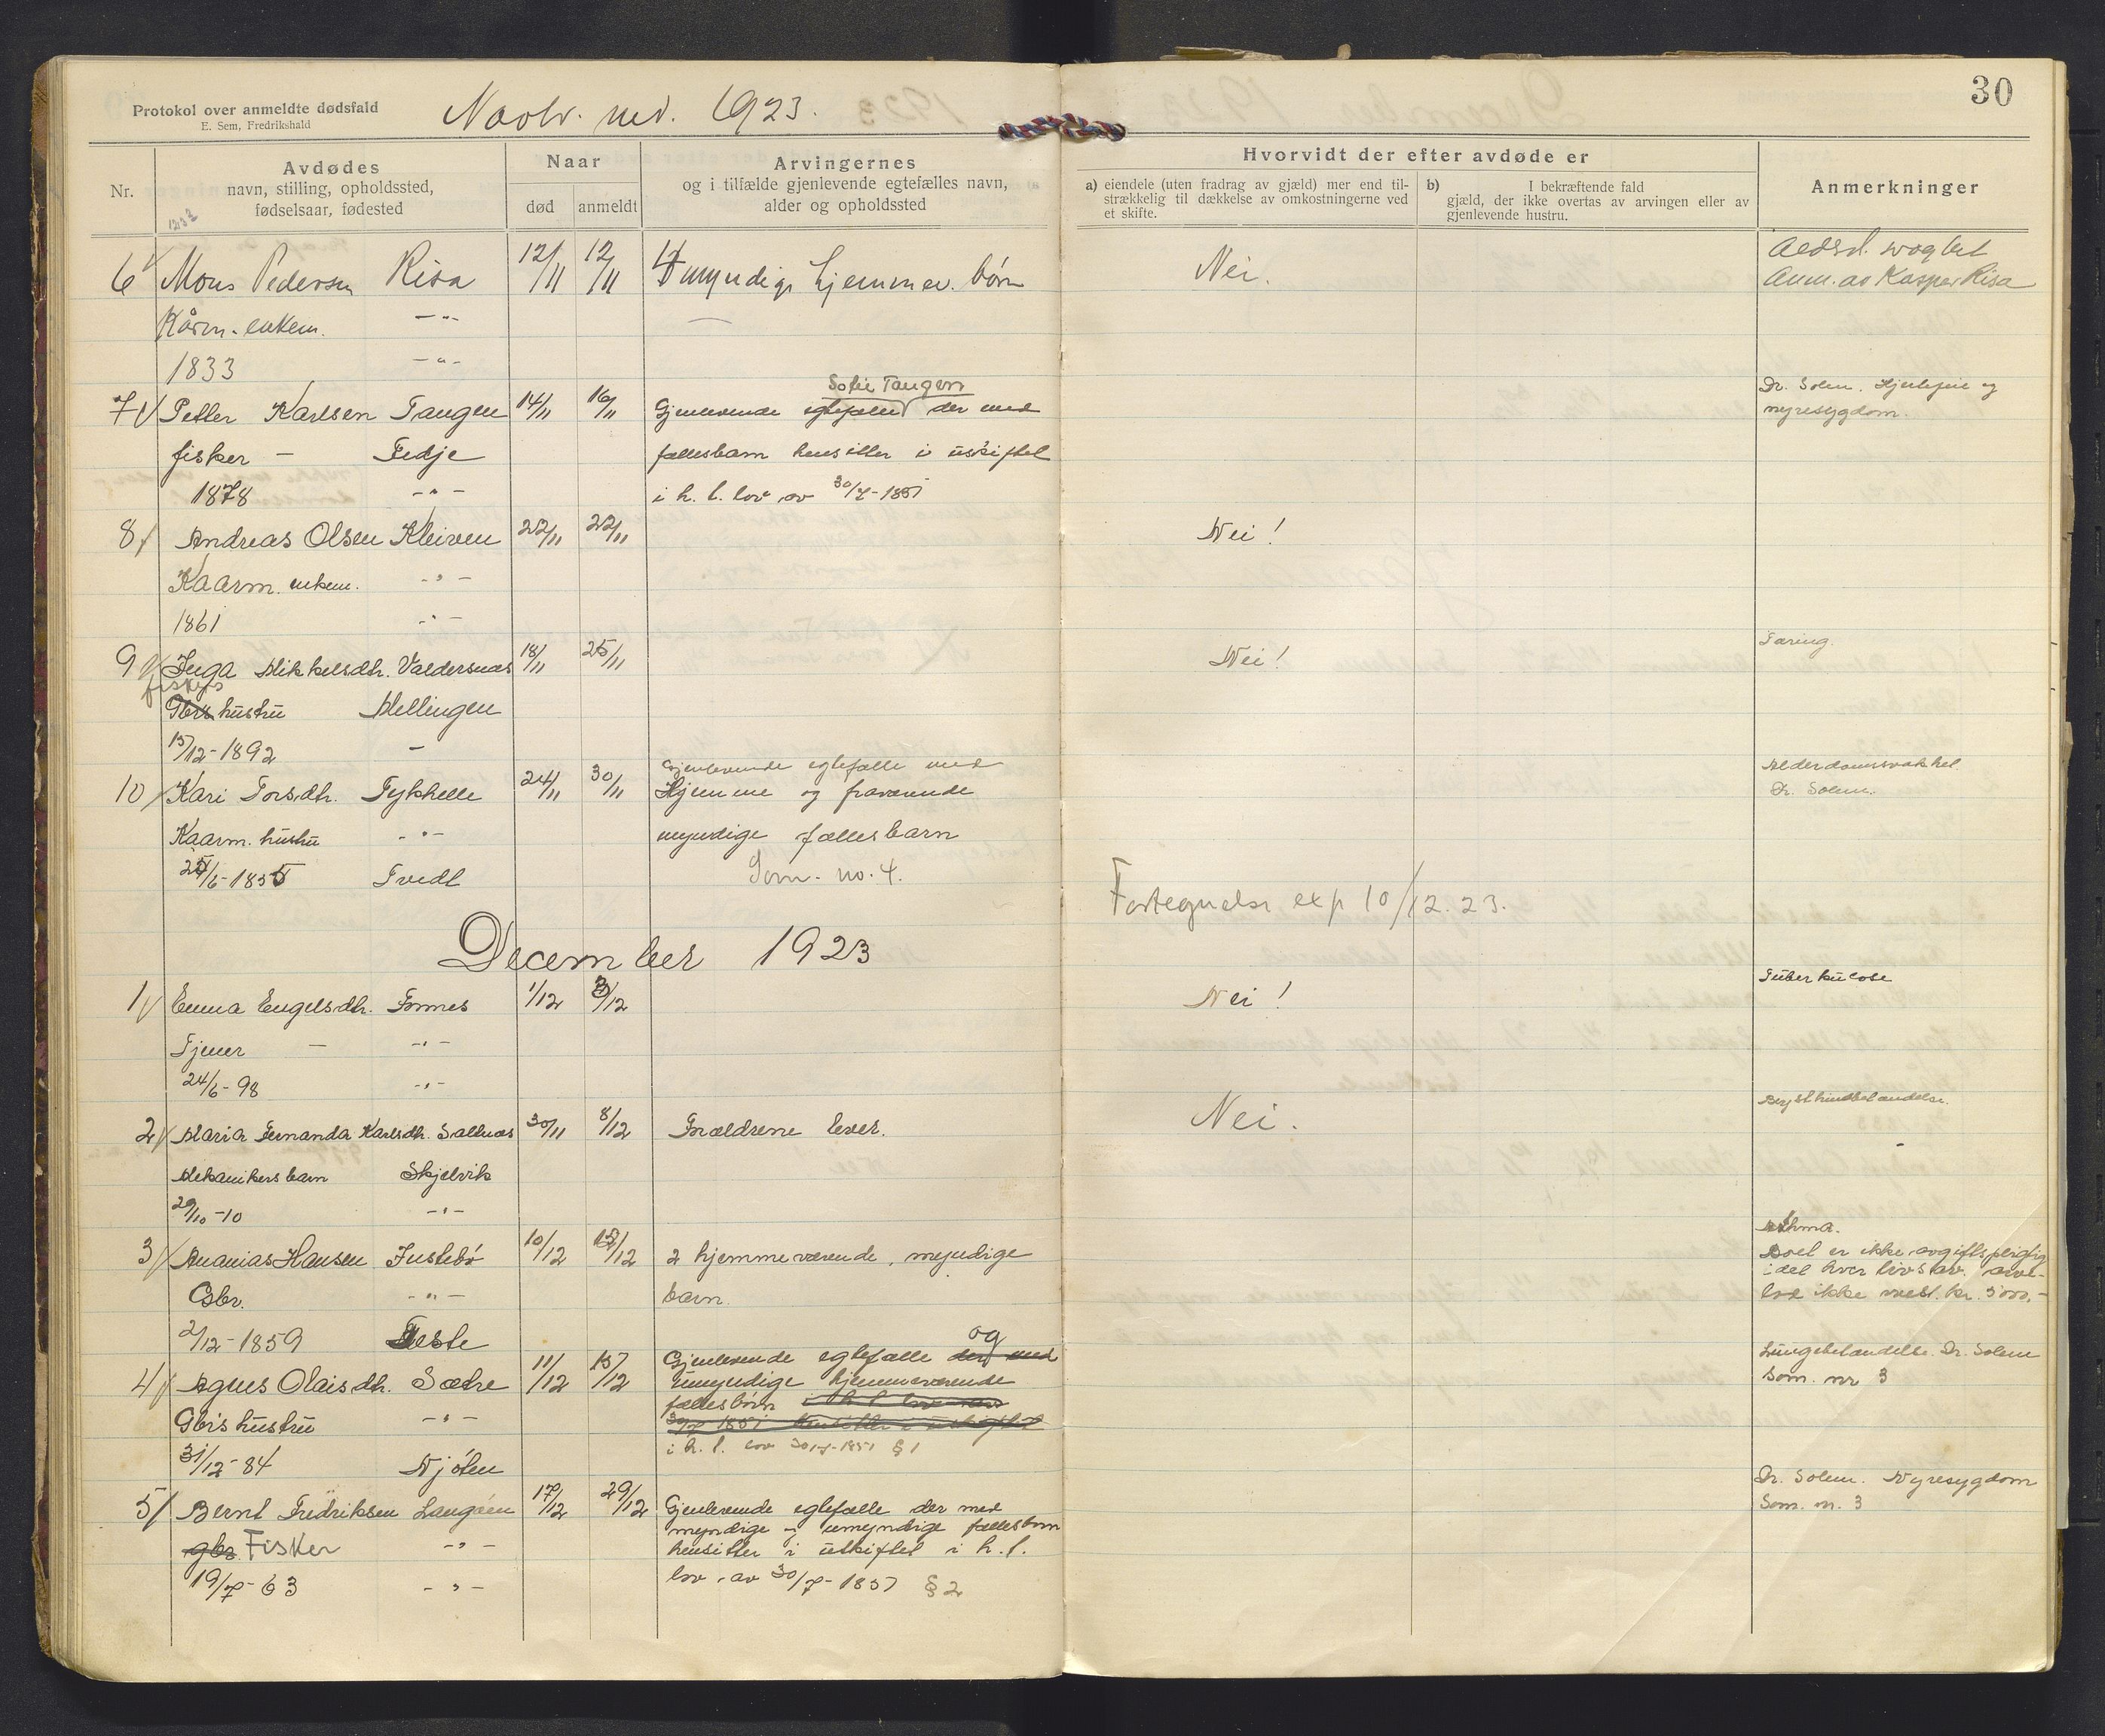 30
Protokol over anmeldte dødsfald
E. Sem, Fredrikshald
Novbr. md. 1923.
Nr.
Avdødes
navn, stilling, opholdssted,
fødselsaar, fødested
Naar
død
anmeldt
Arvingernes
og i tilfælde gjenlevende egtefælles navn,
alder og opholdssted
Hvorvidt der efter avdøde er
a) eiendele (uten fradrag av gjæld) mer end til-
strækkelig til dækkelse av omkostningerne ved
et skifte.
b) I bekræftende fald
gjæld, der ikke overtas av arvingen eller av
gjenlevende hustru.
Anmerkninger
6 Mons Pedersen Risa 12/11 12/11 4 myndige hjemmev. børn Nei. Aldsd. svaghet
Anm. av Kasper Risa
Kårm. enkem. -"-
1833 -"-
7 Petter Karlsen Tangen 14/11 16/11 Gjenlevende egtefælle Sofie Tangen der med Dr. Solem. Hjertefeil og
nyresygdom.
fisker - Fedje fællesbarn hensitter i uskiftet
1878 -"- i h. t. lov av 30/7-1851
8 Andreas Olsen Kleiven 22/11 22/11 Nei!
Kaarm. enkem. -"-
1861 -"-
9 Inga Mikkelsdtr. Valdersnæs 18/11 25/11 Nei! Tæring.
fiskers
Gbrs hustru Mellingen
15/12-1892 -
10 Kari Torsdtr. Tykhelle 24/11 30/11 Gjenlevende egtefælle med Alderdomssvakhet
Dr. Solem.
Hjemme og fraværende
Kaarm. hustru -"- myndige fællesbarn
25/6-1835 Tvedt Som no. 4. Fortegnelse exp 10/12.23.
December 1923
1 Emma Engelsdtr. Fonnes 1/12 3/12 Nei! Tuberkulose
Tjener - -"-
24/6-98 -"-
2 Maria Fernanda Karlsdtr. Saltnæs 30/11 8/12 Forældrene lever. Nei. Brysthindebetændelse.
Mekanikers barn Skjelvik
29/10-10 -"-
3 Ananias Hansen Justebø 10/12 12/12 2 hjemmeværende, myndige Asthma.
Boet er ikke avgiftspligtig
idet hver livsarv. arve-
lod ikke
Gbr. -"- barn.
2/12-1859 Teste
4 Agnes Olaisdtr. Sætre 11/12 15/12 Gjenlevende egtefælle der med og Lungebetændelse. Dr. Solem
Som. nr 3
umyndige hjemmeværende
Gbrs hustru -"- fællesbørn i h. t. lov av
30/7 1851 hensitter i uskiftet
i h. t. lov 30/7-1851 § 1
31/12-84 Njøten
5 Bernt Fredriksen Langøen 17/12 29/12 Gjenlevende egtefælle der med Dr. Solem. Nyresygdom
Som. nr. 3
myndige og umyndige fællesbarn
gbr. Fisker -"- hensitter i uskiftet i h. t.
19/7-63 -"- lov av 30/7-1851 § 2